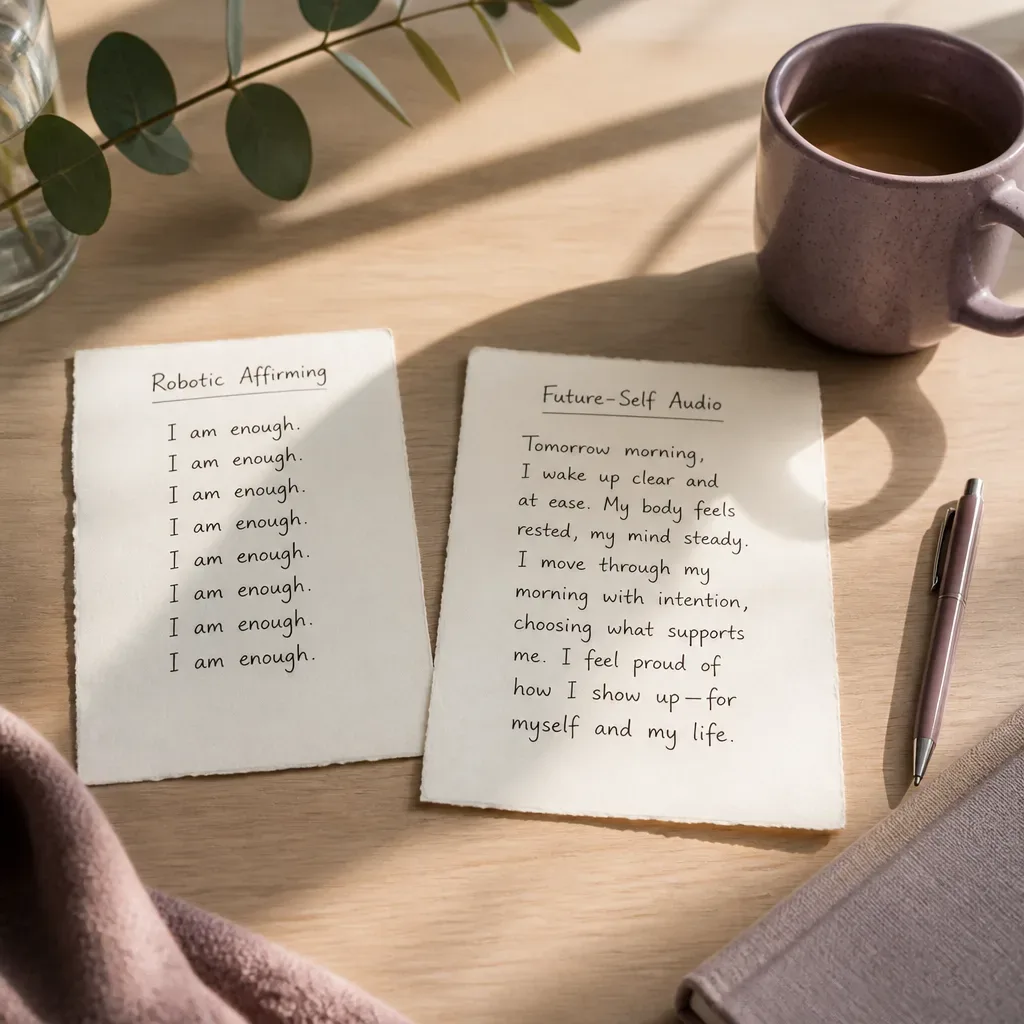 Robotic Affirming
I am enough.
I am enough.
I am enough.
I am enough.
I am enough.
I am enough.
I am enough.
I am enough.
Future-Self Audio
Tomorrow morning,
I wake up clear and
at ease. My body feels
rested, my mind steady.
I move through my
morning with intention,
choosing what supports
me. I feel proud of
how I show up—for
myself and my life.